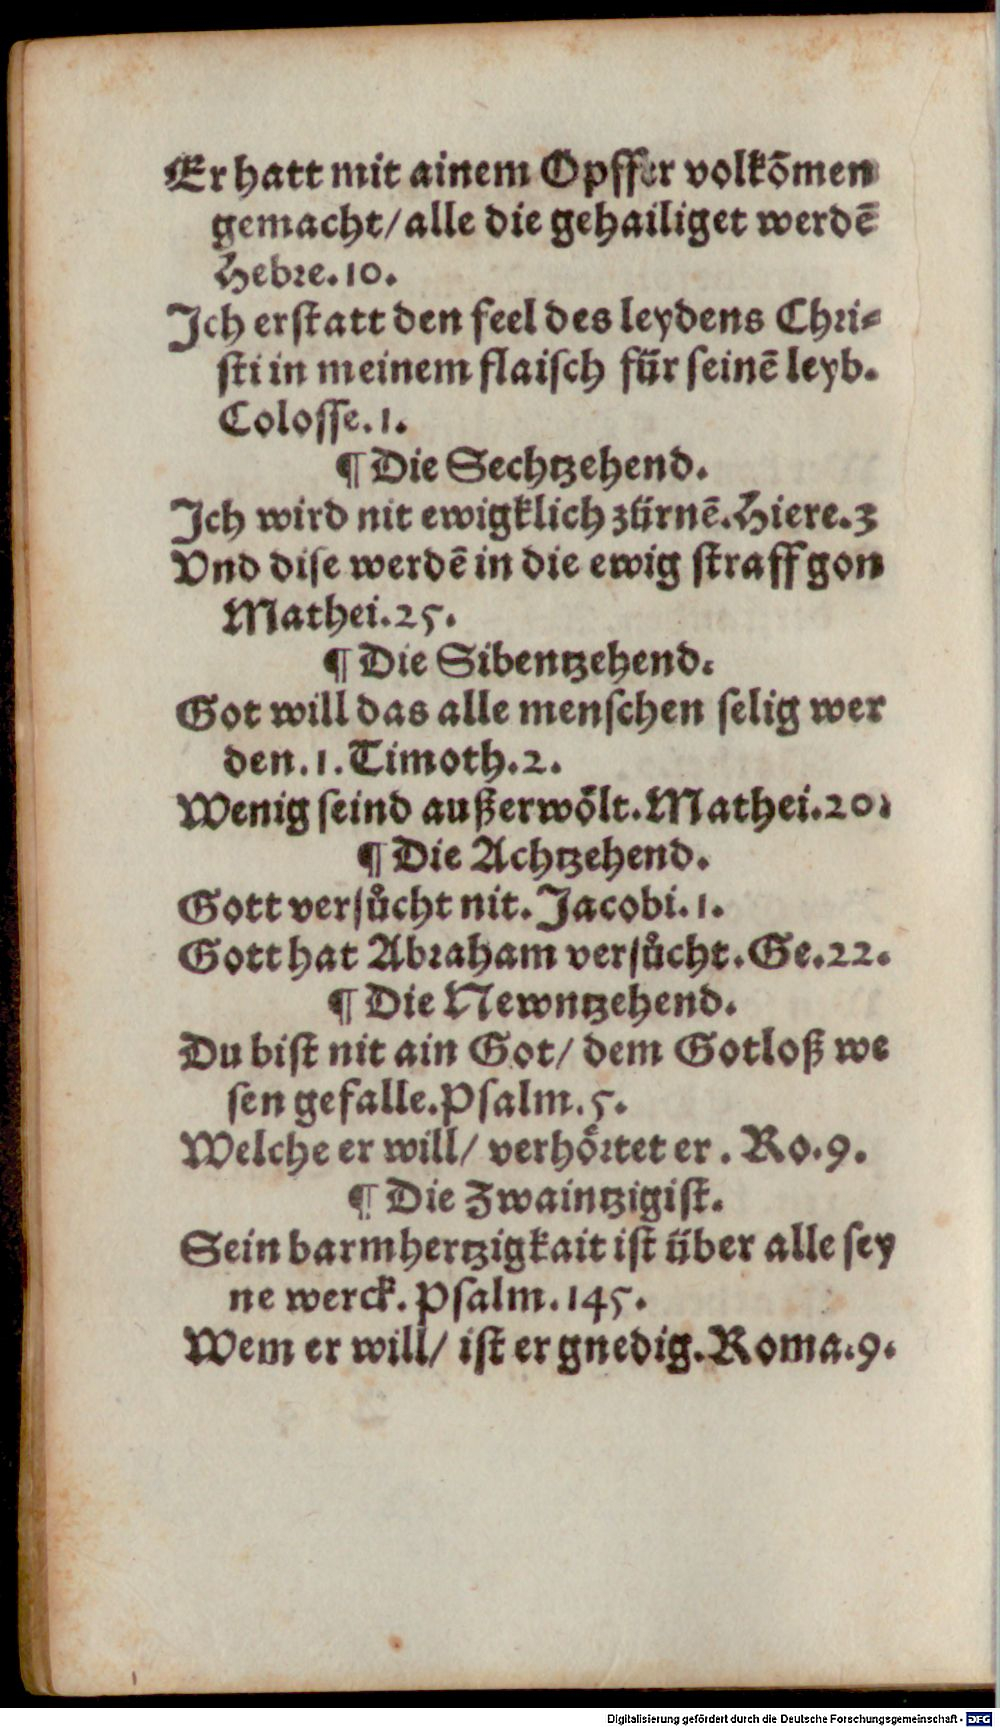 Er hatt mit ainem Opffer volkōmen
gemacht/ alle die gehailiget werdē
Hebre. 10.
Ich erstatt den feel des leydens Chri⸗
sti in meinem flaisch für seinē leyb.
Colosse. 1.
¶ Die Sechtzehend.
Ich wird nit ewigklich zürnē. Hiere. 3
Vnd dise werdē in die ewig straff gon
Mathei. 25.
¶ Die Sibentzehend.
Got will das alle menschen selig wer
den. 1. Timoth. 2.
Wenig seind außerwoͤlt. Mathei. 20.
¶ Die Achtzehend.
Gott versůcht nit. Jacobi. 1.
Gott hat Abraham versůcht. Ge. 22.
¶ Die Newntzehend.
Du bist nit ain Got/ dem Gotloß we
sen gefalle. Psalm. 5.
Welche er will/ verhoͤrtet er. Ro. 9.
¶ Die Zwaintzigist.
Sein barmhertzigkait ist über alle sey
ne werck. Psalm. 145.
Wem er will/ ist er gnedig. Roma. 9.
Digitalisierung gefördert durch die Deutsche Forschungsgemeinschaft - DFG